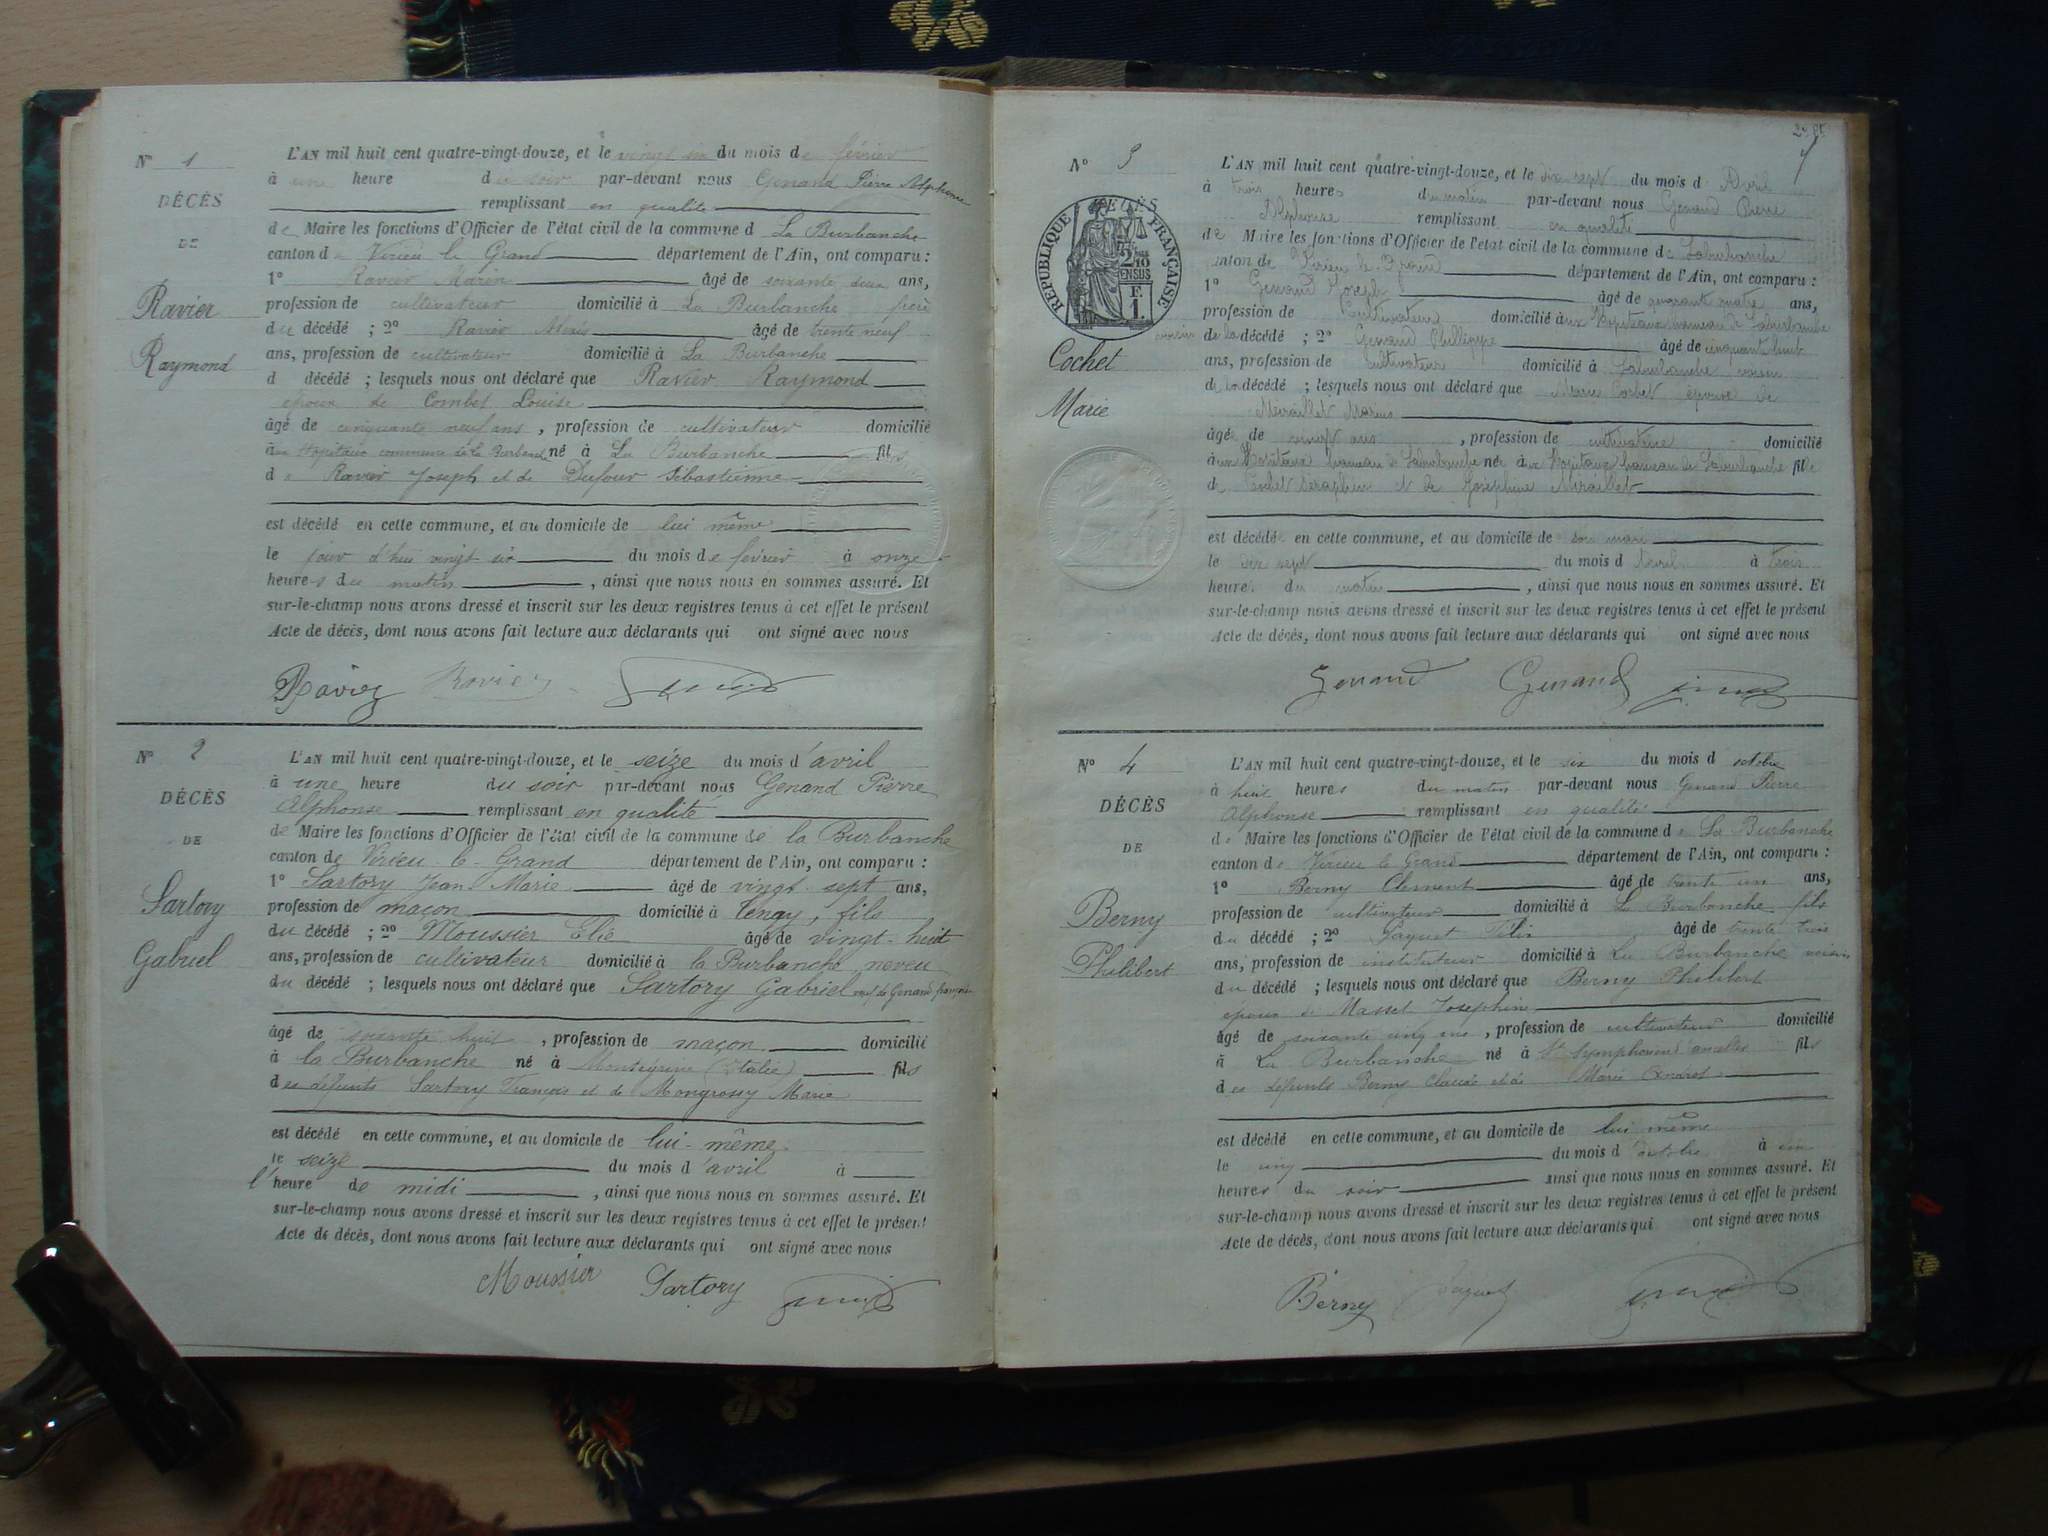 N° 1
DÉCÈS
DE
Ravier
Raymond
L'AN mil huit cent quatre-vingt-douze, et le vingt six du mois de février
à une heure du soir par-devant nous Genand Pierre Alphonse
remplissant en qualité
de Maire les fonctions d'Officier de l'état civil de la commune d La Burbanche
canton de Virieu le Grand département de l'Ain, ont comparu :
1° Ravier Marin âgé de soixante deux ans,
profession de cultivateur domicilié à La Burbanche frère
du décédé ; 2° Ravier Alexis âgé de trente neuf
ans, profession de cultivateur domicilié à La Burbanche
d décédé ; lesquels nous ont déclaré que Ravier Raymond
époux de Combet Louise
âgé de cinquante neuf ans , profession de cultivateur domicilié
aux Hopitaux commune de la Burbanche né à La Burbanche fils
de Ravier Joseph et de Dufour Sébastienne
est décédé en cette commune, et au domicile de lui même
le jour d'hui vingt six du mois de février à onze
heures du matin , ainsi que nous nous en sommes assuré. Et
sur-le-champ nous avons dressé et inscrit sur les deux registres tenus à cet effet le présent
Acte de décès, dont nous avons fait lecture aux déclarants qui ont signé avec nous
Ravier Ravier
N° 2
DÉCÈS
DE
Sartory
Gabriel
L'AN mil huit cent quatre-vingt-douze, et le seize du mois d'avril
à une heure du soir par-devant nous Genand Pierre
Alphonse remplissant en qualité
de Maire les fonctions d'Officier de l'état civil de la commune de la Burbanche
canton de Virieu-le-Grand département de l'Ain, ont comparu :
1° Sartory Jean-Marie âgé de vingt-sept ans,
profession de maçon domicilié à Tenay, fils
du décédé ; 2° Moussier Elie âgé de vingt-huit
ans, profession de cultivateur domicilié à la Burbanche neveu
du décédé ; lesquels nous ont déclaré que Sartory Gabriel veuf de Genand
âgé de soixante huit , profession de maçon domicilié
à la Burbanche né à (Italie) fils
des défunts Sartory François et de Mongrossy Marie
est décédé en cette commune, et au domicile de lui-même
le seize du mois d'avril à
l'heure de midi , ainsi que nous nous en sommes assuré. Et
sur-le-champ nous avons dressé et inscrit sur les deux registres tenus à cet effet le présent
Acte de décès, dont nous avons fait lecture aux déclarants qui ont signé avec nous
Moussier Sartory
N° 3
RÉPUBLIQUE FRANÇAISE
Cochet
Marie
L'AN mil huit cent quatre-vingt-douze, et le dix sept du mois d Avril
à trois heures du matin par-devant nous Genand Pierre
Alphonse remplissant en qualité
de Maire les fonctions d'Officier de l'état civil de la commune de Laburbanche
canton de Virieu le Grand département de l'Ain, ont comparu :
1° Genand Joseph âgé de quarante quatre ans,
profession de Cultivateur domicilié aux Hopitaux hameau de Laburbanche
voisin de la décédé ; 2° Genand Philippe âgé de cinquant huit
ans, profession de cultivateur domicilié à Laburbanche voisin
de la décédé ; lesquels nous ont déclaré que Marie Cochet épouse de
Miraillet Marius
âgée de vingt ans , profession de cultivatrice domicilié
aux Hopitaux hameau de Laburbanche née aux Hopitaux hameau de Laburbanche fille
de Cochet Séraphin et de Joséphine Miraillet
est décédée en cette commune, et au domicile de son mari
le dix sept du mois d Avril à trois
heures du matin , ainsi que nous nous en sommes assuré. Et
sur-le-champ nous avons dressé et inscrit sur les deux registres tenus à cet effet le présent
Acte de décès, dont nous avons fait lecture aux déclarants qui ont signé avec nous
Genand Genand
N° 4
DÉCÈS
DE
Berny
Philibert
L'AN mil huit cent quatre-vingt-douze, et le six du mois d octobre
à huit heures du matin par-devant nous Genand Pierre
Alphonse remplissant en qualité
de Maire les fonctions d'Officier de l'état civil de la commune de La Burbanche
canton de Virieu le Grand département de l'Ain, ont comparu :
1° Berny Clément âgé de trente un ans,
profession de cultivateur domicilié à La Burbanche fils
du décédé ; 2° âgé de trente trois
ans, profession de instituteur domicilié à La Burbanche voisin
du décédé ; lesquels nous ont déclaré que Berny Philibert
époux de Masset Joséphine
âgé de soixante cinq ans , profession de cultivateur domicilié
à La Burbanche né à St Symphorien d'ancelles fils
des défunts Berny Claude et de Marie
est décédé en cette commune, et au domicile de lui même
le cinq du mois d'octobre à
heures du soir ainsi que nous nous en sommes assuré. Et
sur-le-champ nous avons dressé et inscrit sur les deux registres tenus à cet effet le présent
Acte de décès, dont nous avons fait lecture aux déclarants qui ont signé avec nous
Berny